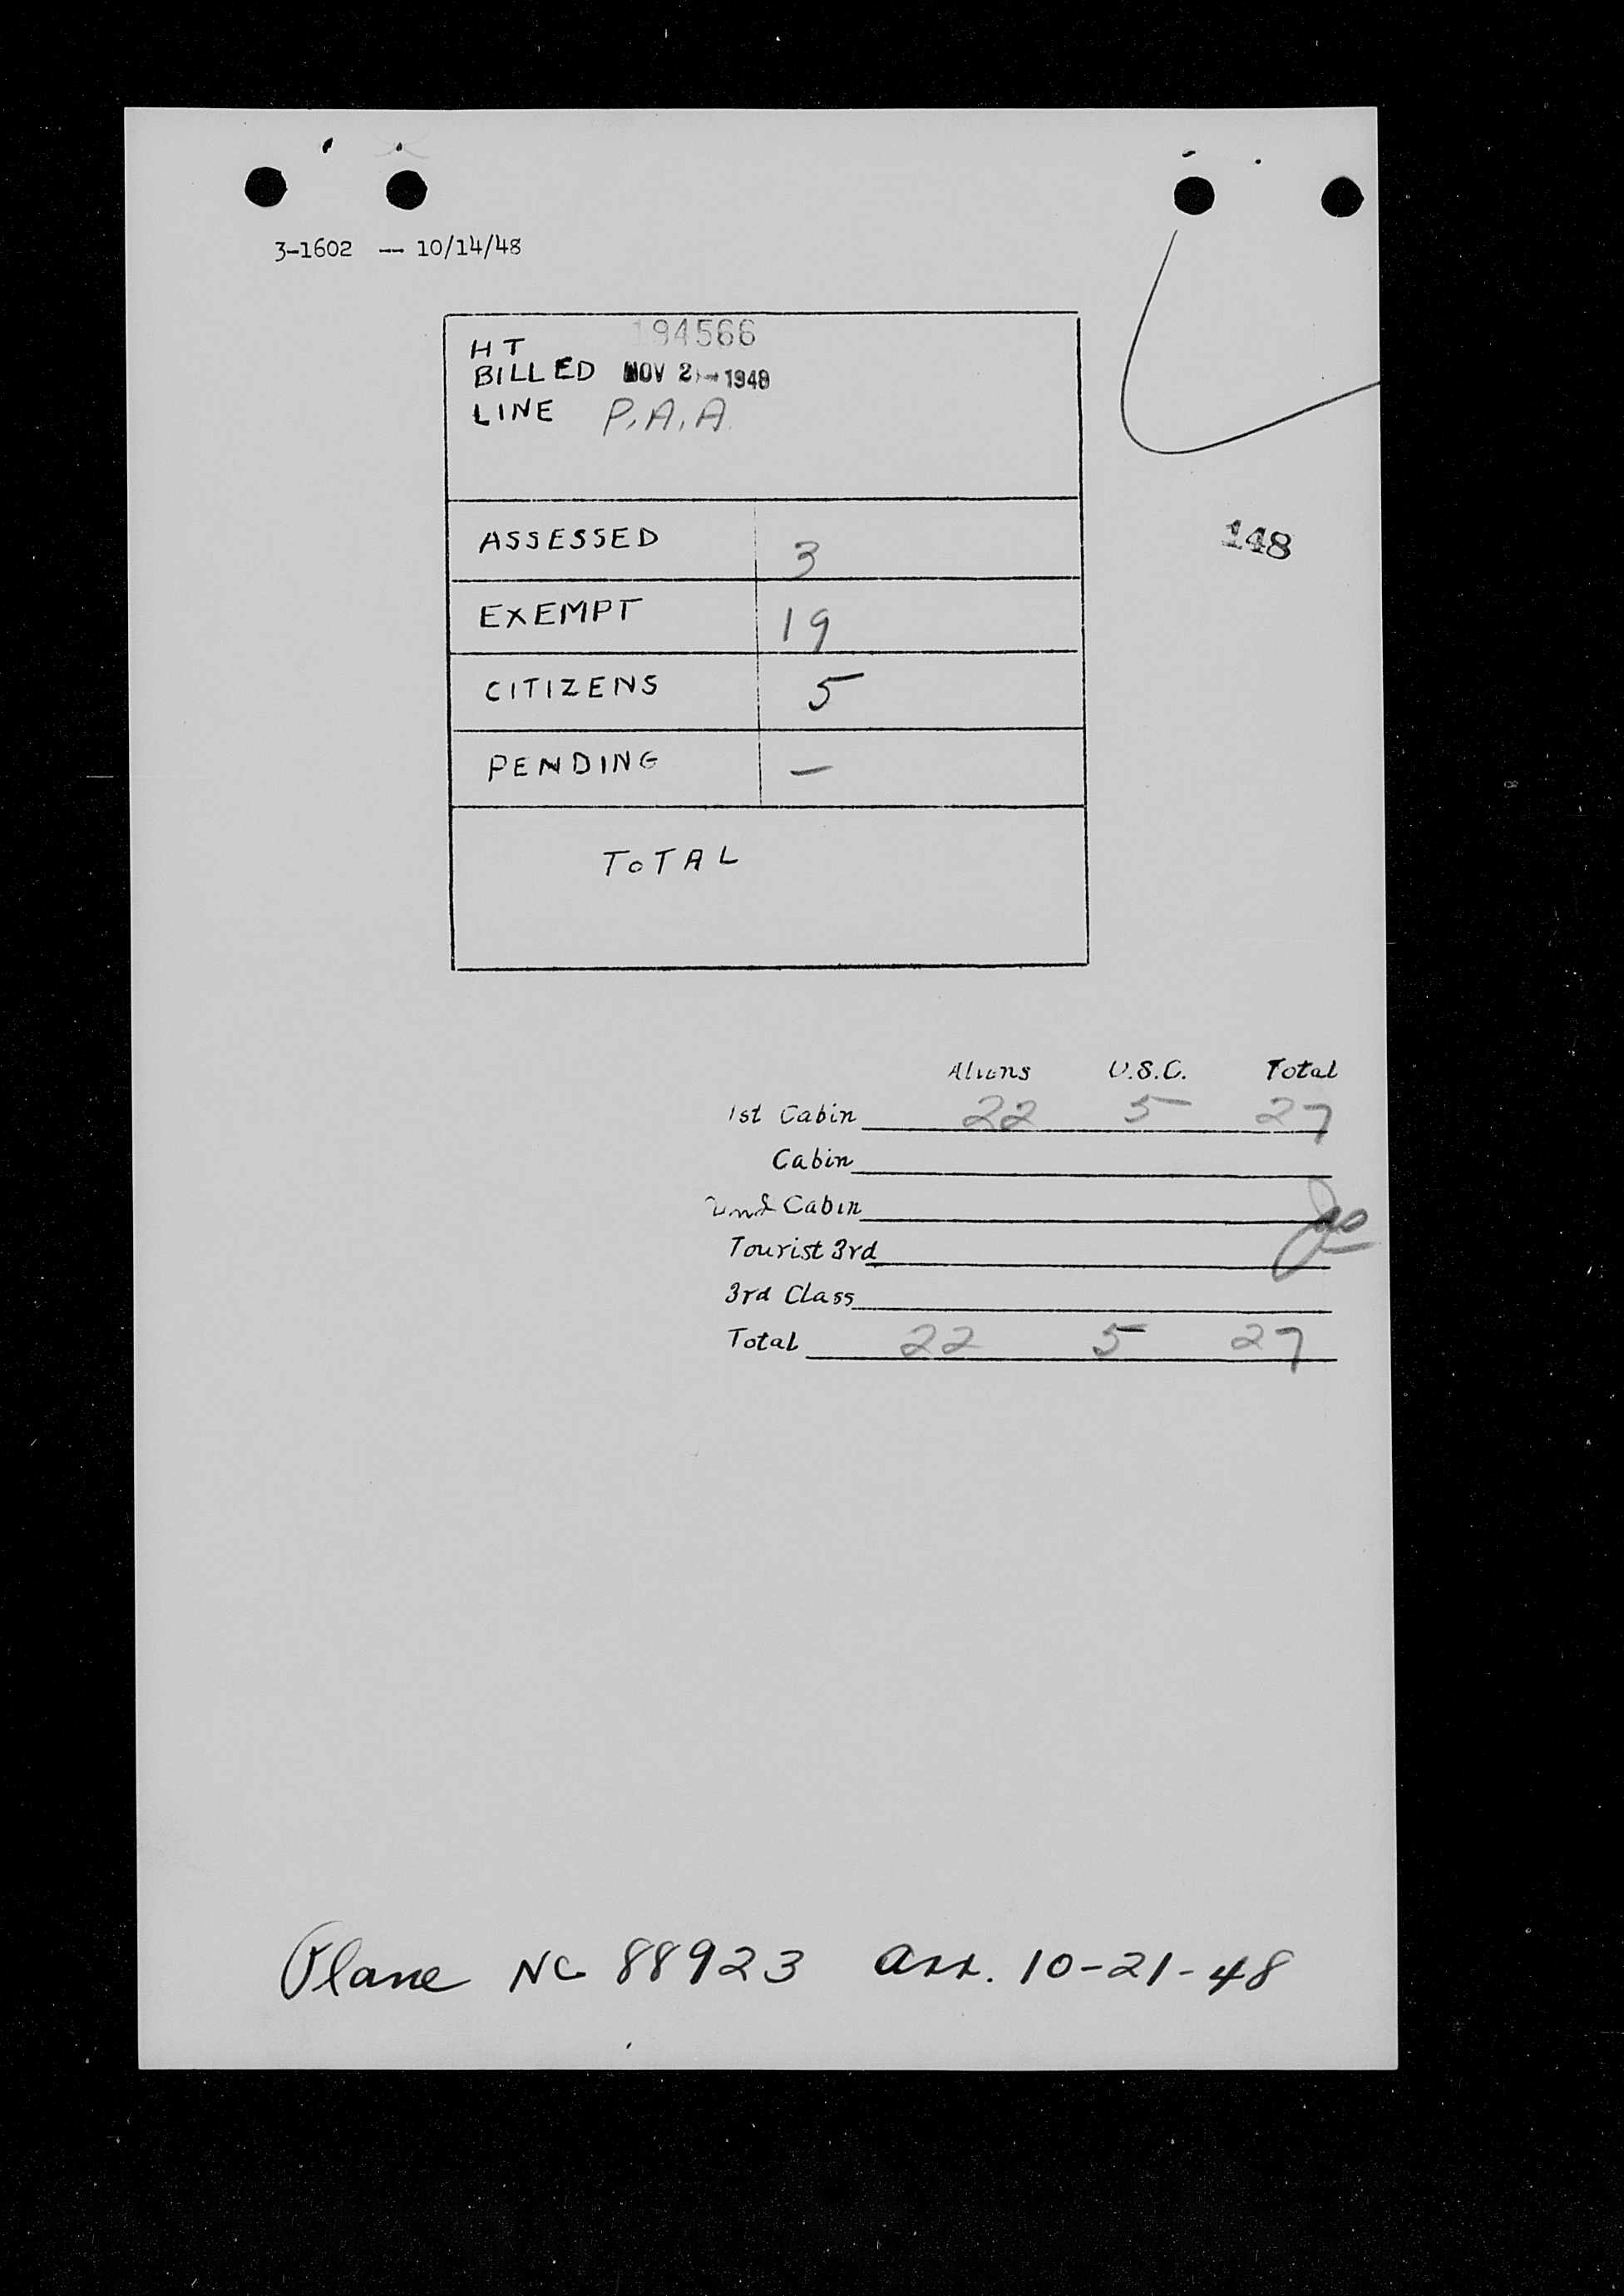 3-1602 -- 10/14/48
HT 194566
BILLED NOV 2 - 1948
LINE P.A.A.
148
ASSESSED 3
EXEMPT 19
CITIZENS 5
PENDING —
TOTAL
Aliens U.S.C. Total
1st Cabin 22 5 27
Cabin
2nd Cabin
Tourist 3rd
3rd Class
Total 22 5 27
Plane NC 88923 arr. 10-21-48